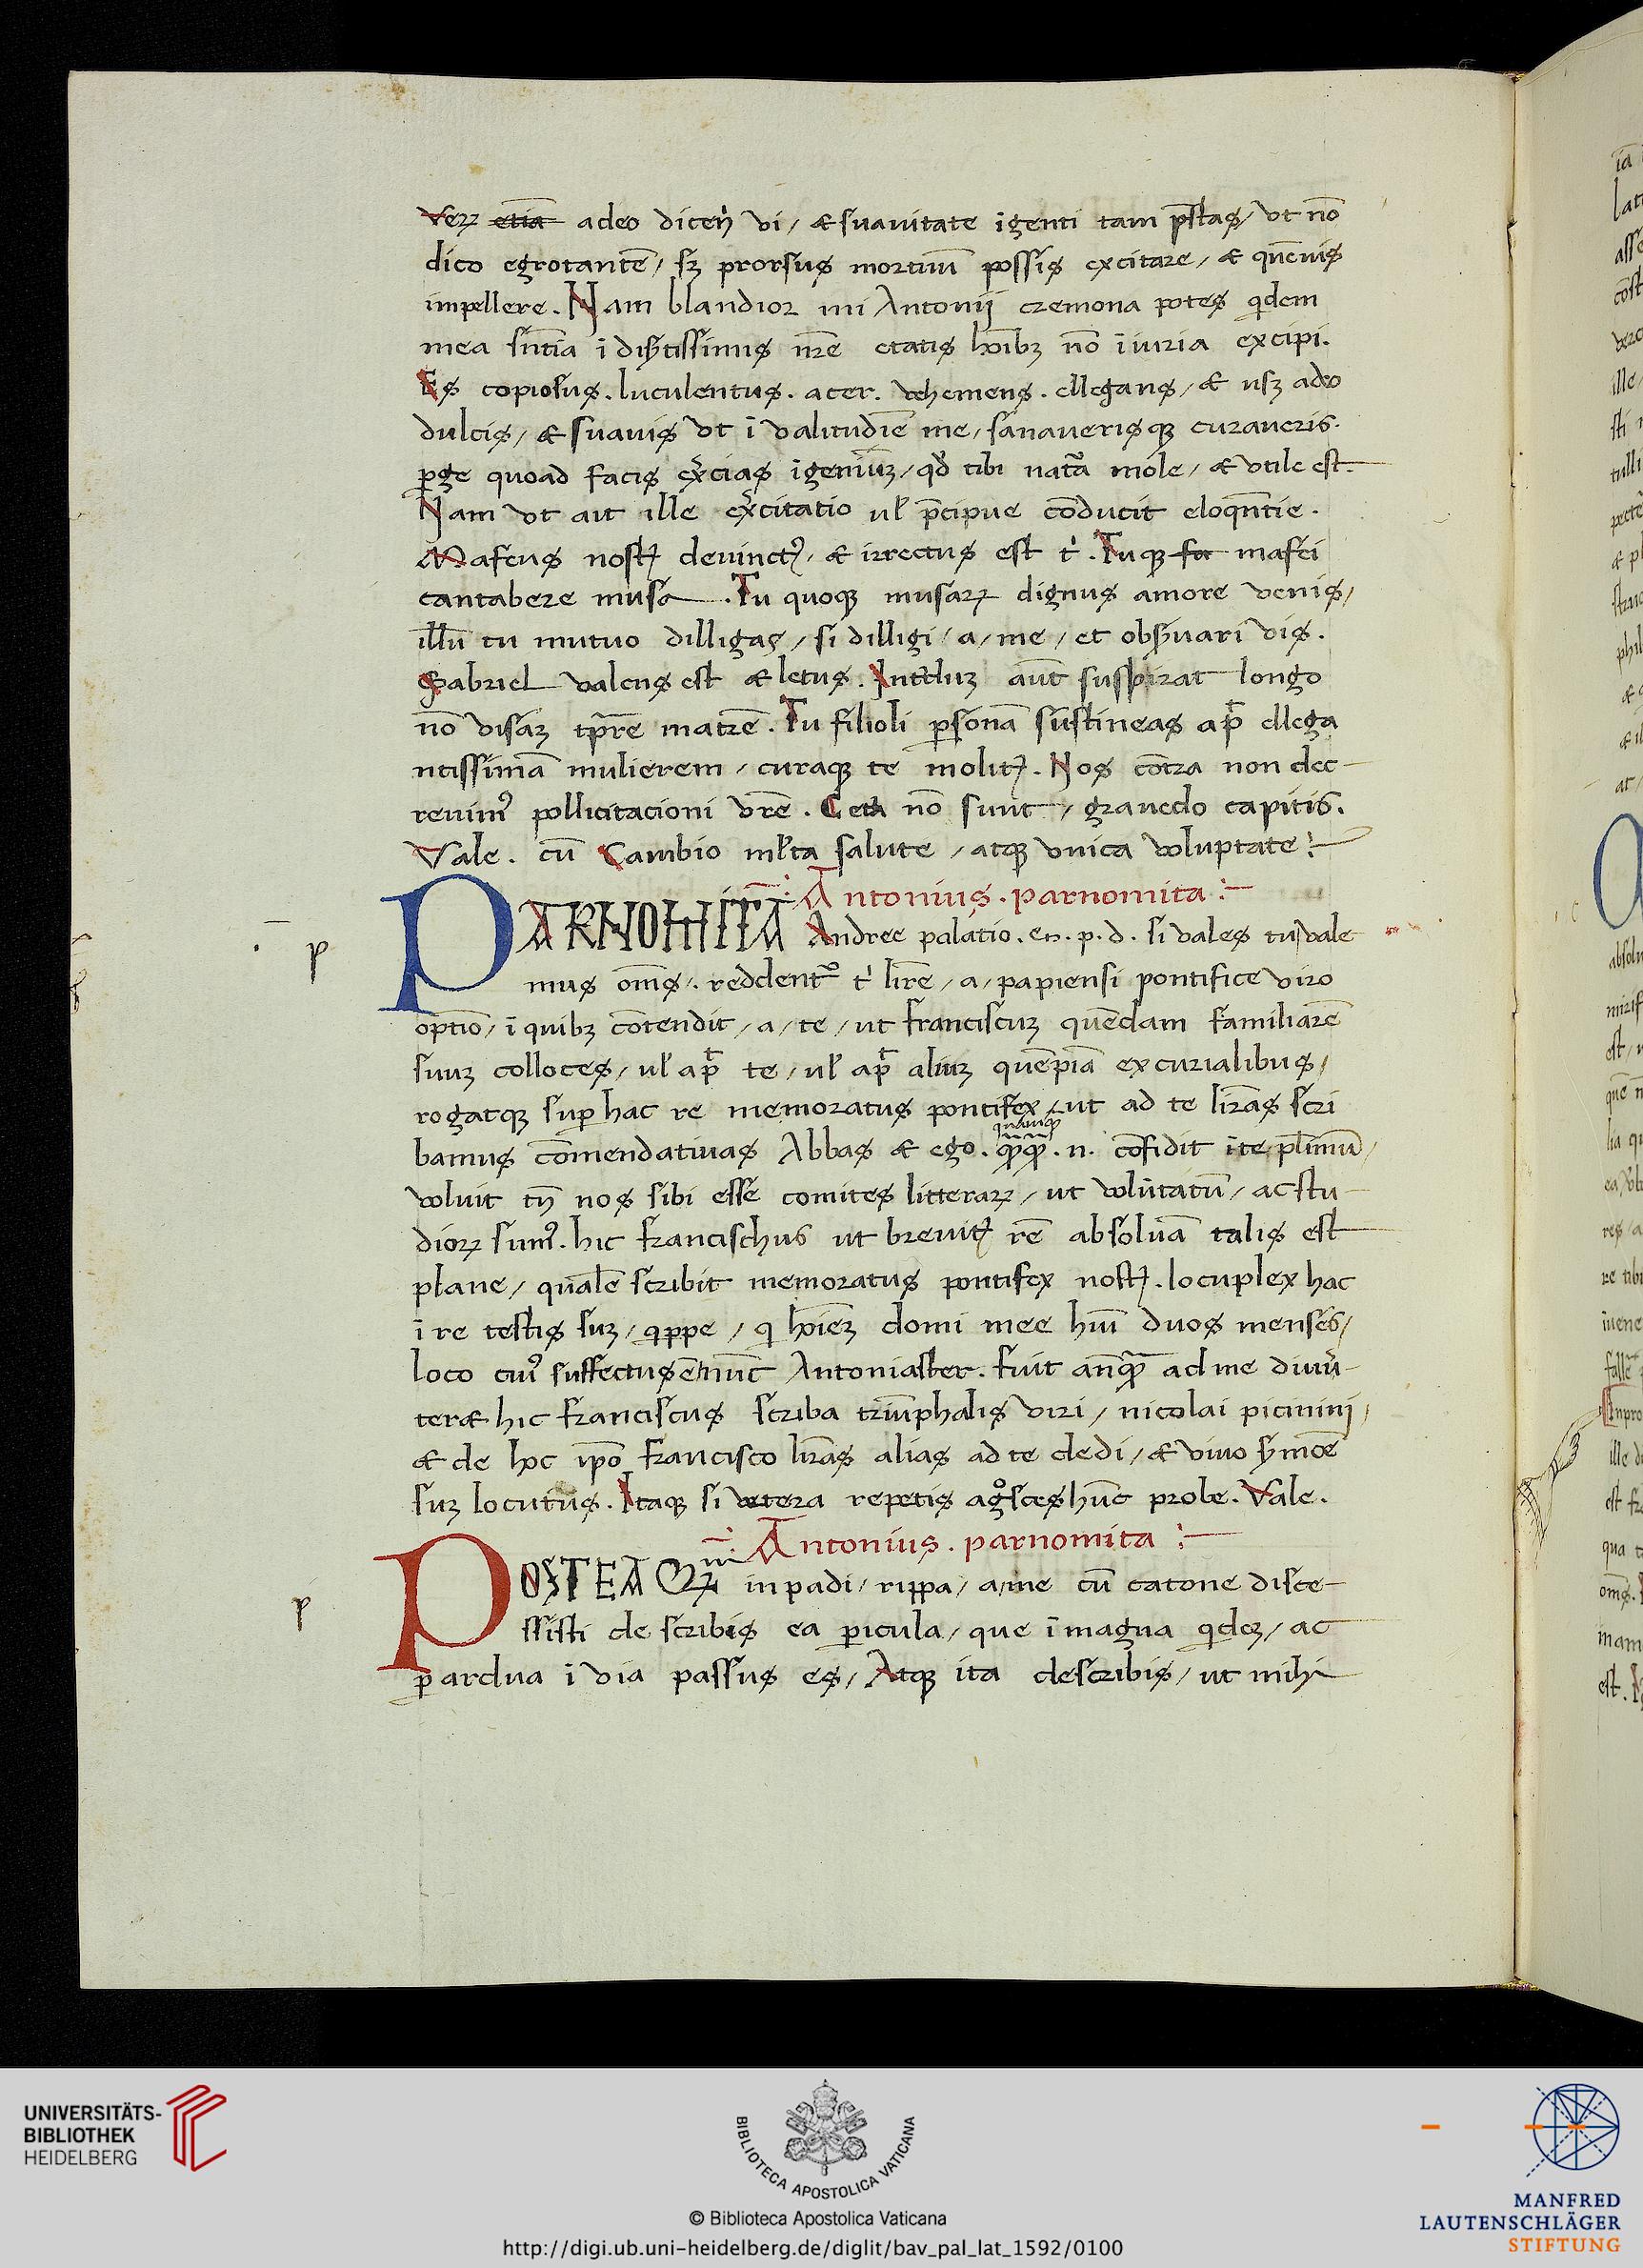 verꝝ etiā adeo dicenͥ vi / & suauitate īgenti tam p̄stas / vt nō
dico egrotantē / sꝫ prorsus mortuū possis excitare / & quēuis
impellere . Nam blandior mi Antonij cremona potes qͥdem
mea sn̄tia ī disertissimis nr̄e etatis hoībꝫ nō īiuria excipi .
Es copiosus . luculentus . acer . vehemens . ellegans / & usꝫ adeo
dulcis / & suauis vt ī valitudīe me / sanauerisqꝫ curaueris .
ꝑge quoad facis exͣcias īgeniūꝫ / qd̓ tibi natā mole / & vtile est .
Nam vt ait ille exͣcitatio ul̓ p̄cipue cōducit eloqn̄tie .
Mafeus nostꝭ deuinctꝰ / & irrectus est tͥ . Tuqꝫ for mafei
cantabere musa . Tu quoqꝫ musarꝝ dignus amore venis /
illū tu mutuo dilligas / si dilligi / a / me / et obẜuari vis .
Gabriel valens est & letus . Inteͬduꝫ aūt suspirat longo
nō visaꝫ tp̄re matrē . Tu filioli ꝑsonā sustineas ap̄ ellega
ntissimā mulierem / curaqꝫ te molitꝭ . Nos cōtra non dec-
reuimꝰ pollicitacioni vr̄e . Ceta nō sunt / grauedo capitis .
Vale . cū Cambio ml̓ta salute / atqꝫ vnica voluptate :
Antonius . parnomita :
PARNOMITA Andree palatio . en . p . d . si vales tu / vale
mus om̄s / . reddentͬ tͥ lr̄e / a / papiensi pontifice viro
optīo / ī quibꝫ cōtendit / a / te / ut franciscuꝫ quēdam familiarē
suuꝫ colloces / ul̓ ap̄ te / ul̓ ap̄ aliuꝫ quēpiā ex curialibus /
rogatqꝫ suꝑ hac re memoratus pontifex / ut ad te lr̄as scri
quāuqꝫ
bamus cōmendatiuas Abbas & ego . qꝫqꝫ . n . cōfidit ī te pl̄imū /
voluit tn̄ nos sibi esse comites litterarꝝ / ut volūtatū / ac stu-
diorꝝ sumꝰ . hic franciscus ut breuitꝭ rē absoluā talis est
plane / qualē scribit memoratus pontifex nostꝭ . locuplex hac
ī re testis suꝫ / qͥppe / qͥ hoīeꝫ domi mee hūi duos menses /
loco cuiꝰ suffectus ē nūc Antoniaster . fuit anqͣꝫ ad me diuͥ-
ter & hic franciscus scriba triūphalis viri / nicolai picinini /
& de hoc ip̄o francisco lr̄as alias ad te dedi / & viuo ẜmōe
suꝫ locutus . Itaqꝫ si vetera repetis agͦsces hūc probe . Vale .
Antonius . parnomita :
POSTEA Qꝫm in padi / rippa / a / me cū catone disce-
ssisti de scribis ea ꝑicula / que ī magna qͥdeꝫ / ac
ꝑ ardua ī via passus es / Atqꝫ ita describis / ut mihi
p
p
UNIVERSITÄTS-
BIBLIOTHEK
HEIDELBERG
BIBLIOTECA APOSTOLICA VATICANA
© Biblioteca Apostolica Vaticana
http://digi.ub.uni-heidelberg.de/diglit/bav_pal_lat_1592/0100
MANFRED
LAUTENSCHLÄGER
STIFTUNG